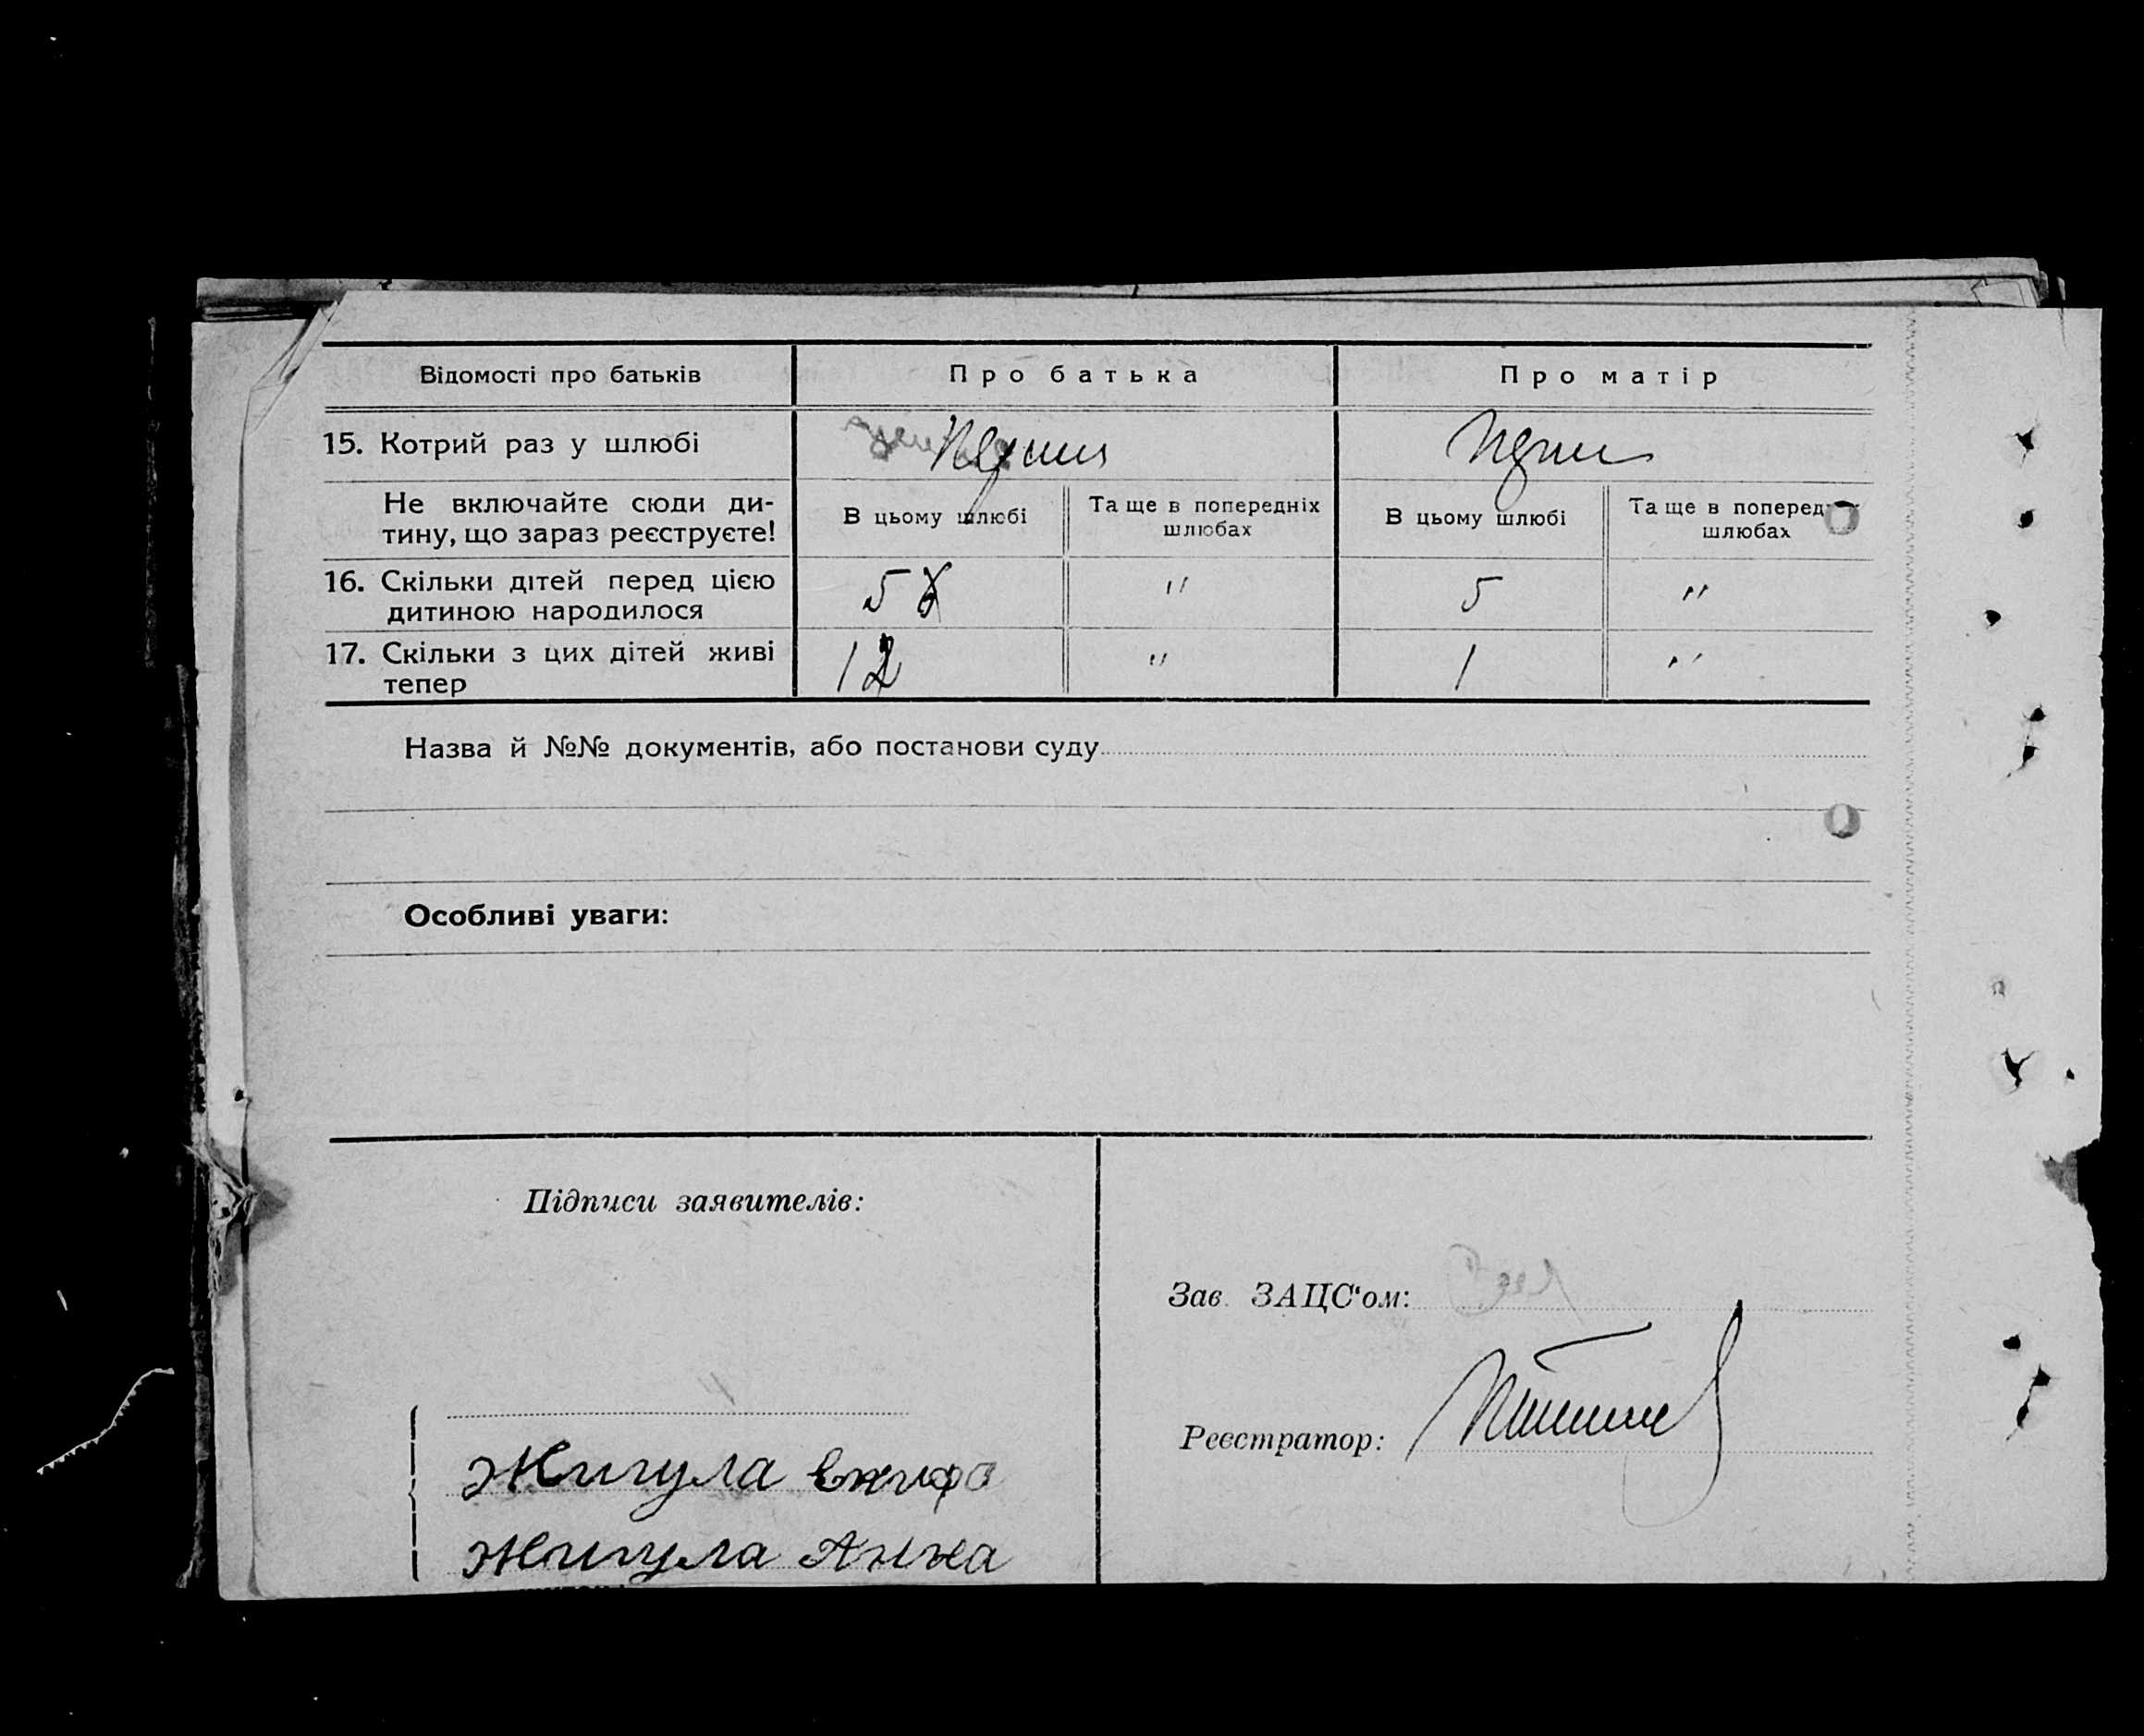 Відомості про батьків Про батька Про матір
15. Котрий раз у шлюбі Перший Перш
Не включайте сюди ди-
тину, що зараз реєструєте!
В цьому шлюбі Та ще в попередніх
шлюбах
В цьому шлюбі Та ще в поперед
шлюбах
16. Скільки дітей перед цією
дитиною народилося
5 " 5 "
17. Скільки з цих дітей живі
тепер
1 2 " 1 "
Назва й №№ документів, або постанови суду
Особливі уваги:
Підписи заявителів:
Зав. ЗАЦС‘ом:
Реєстратор:
Жигула
Жигула Анна